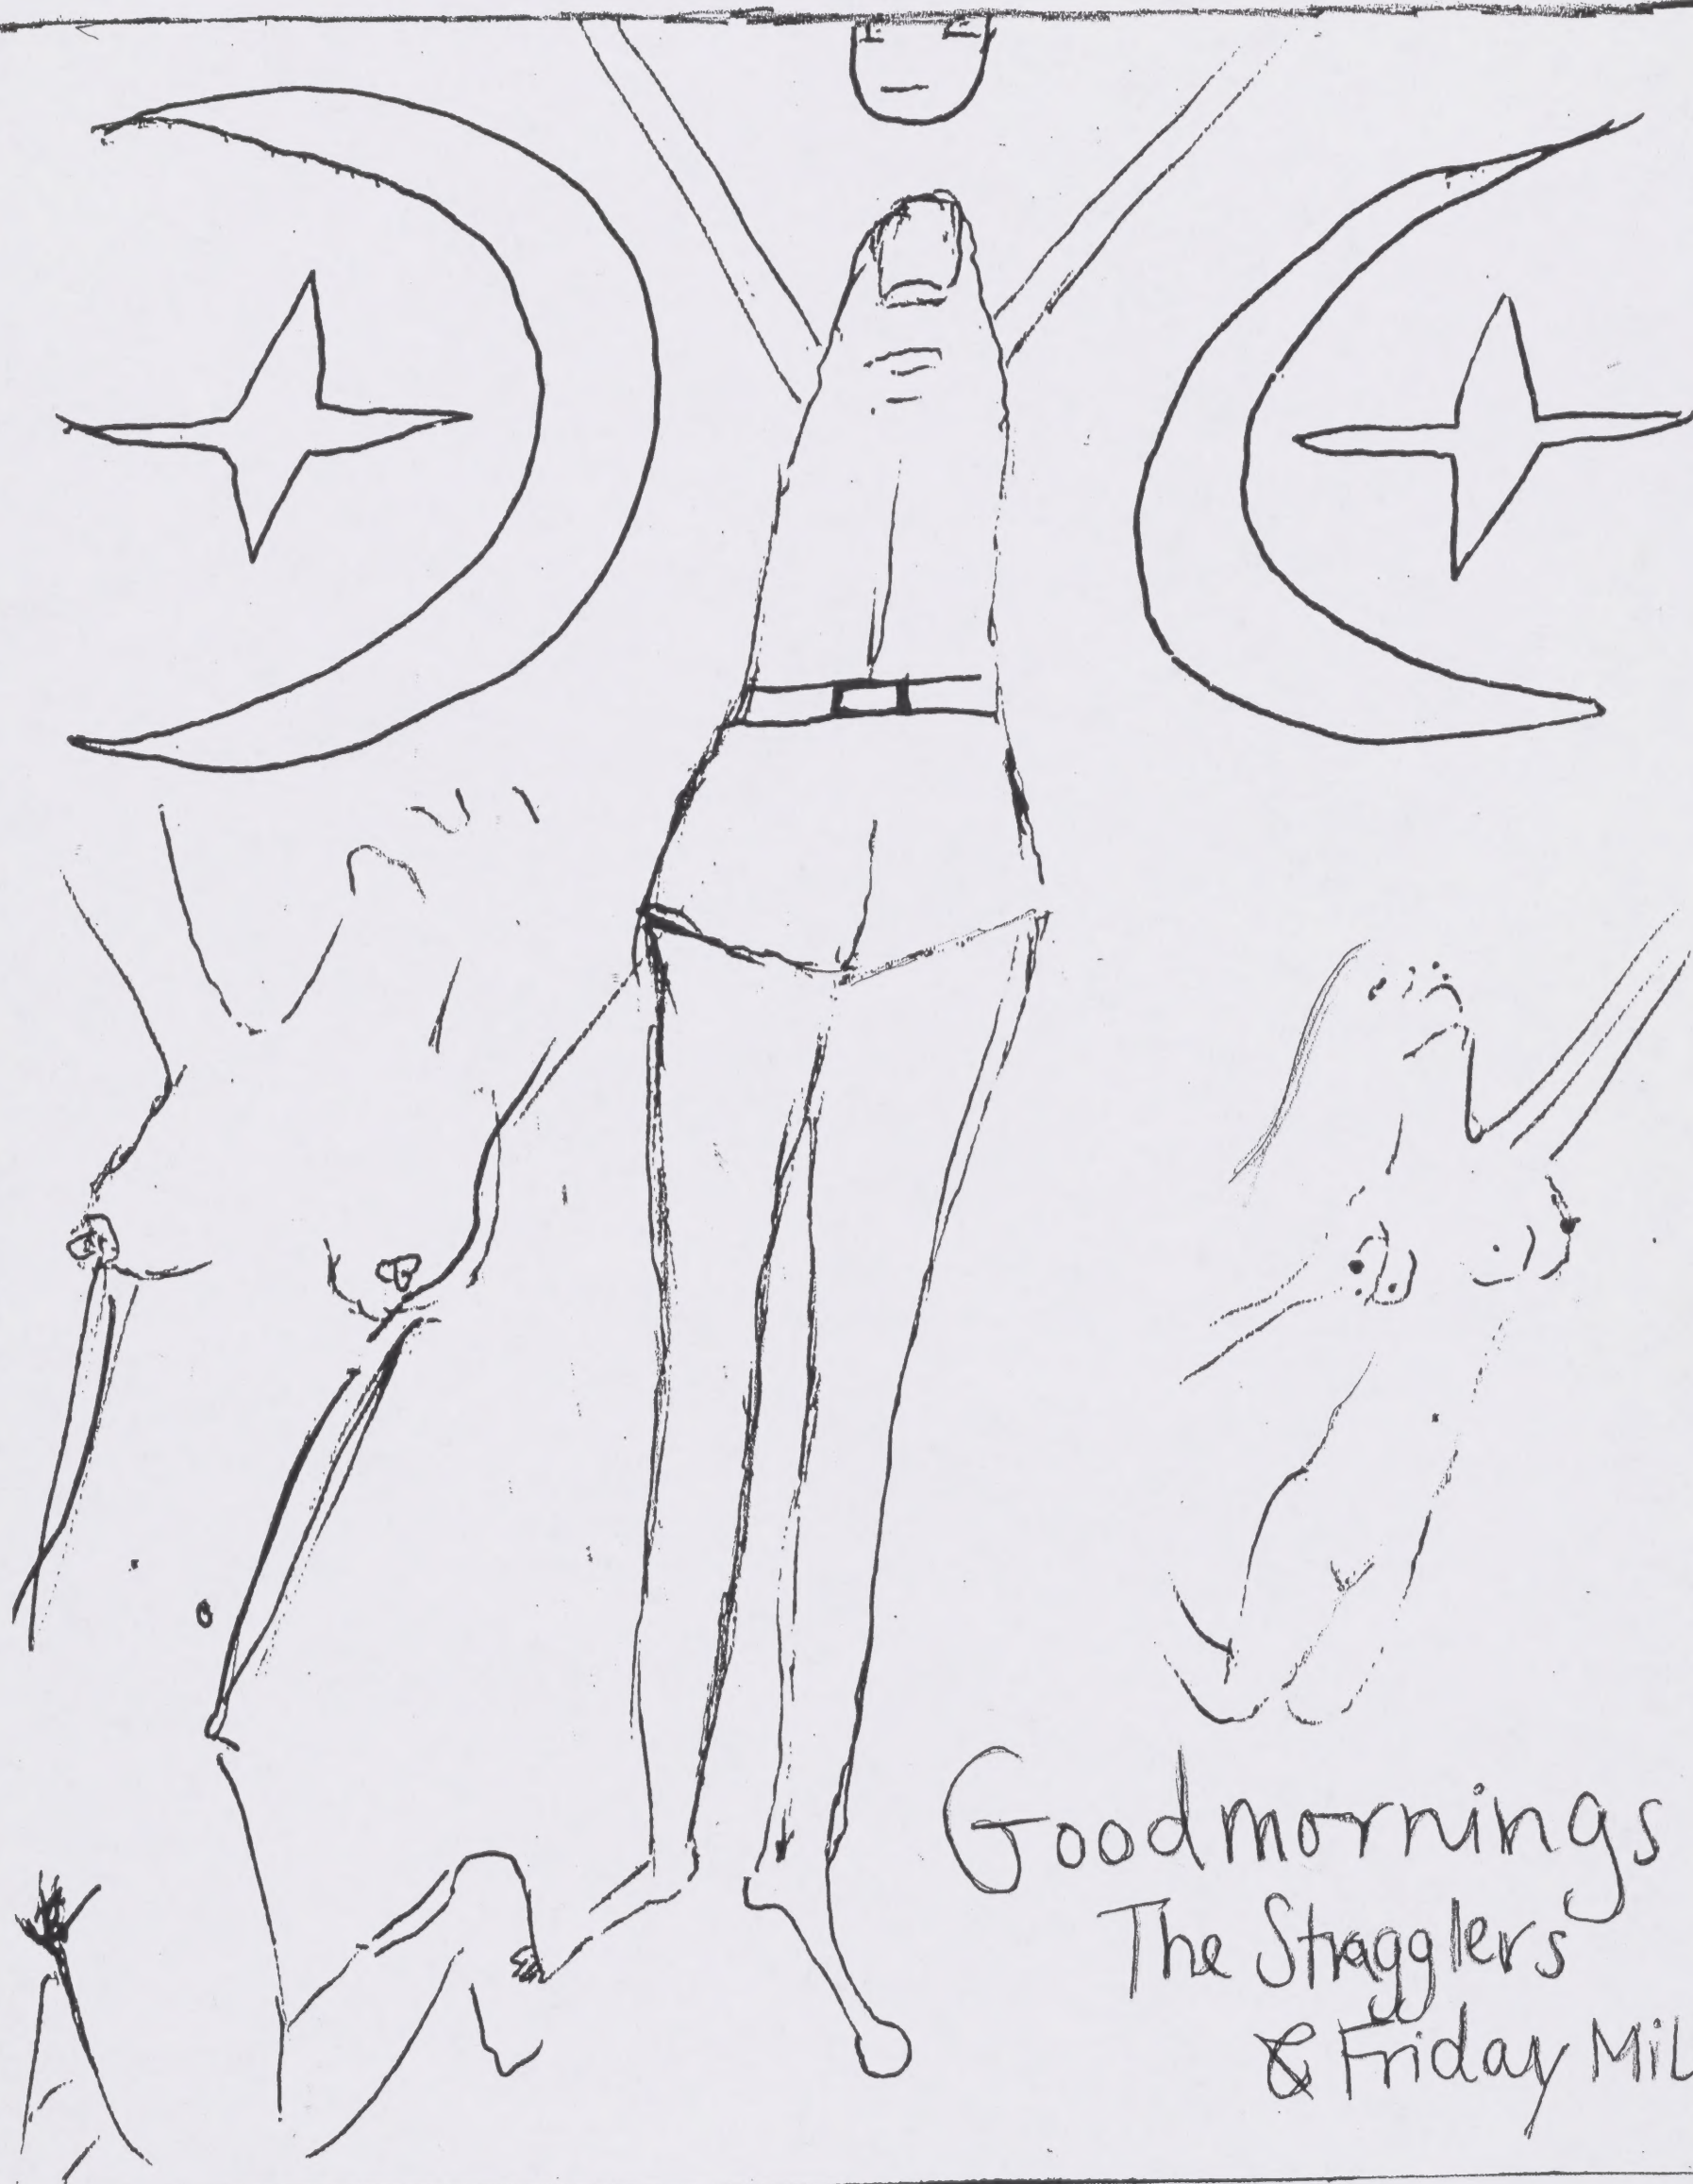 Goodmornings
The Stragglers
& Friday MiL